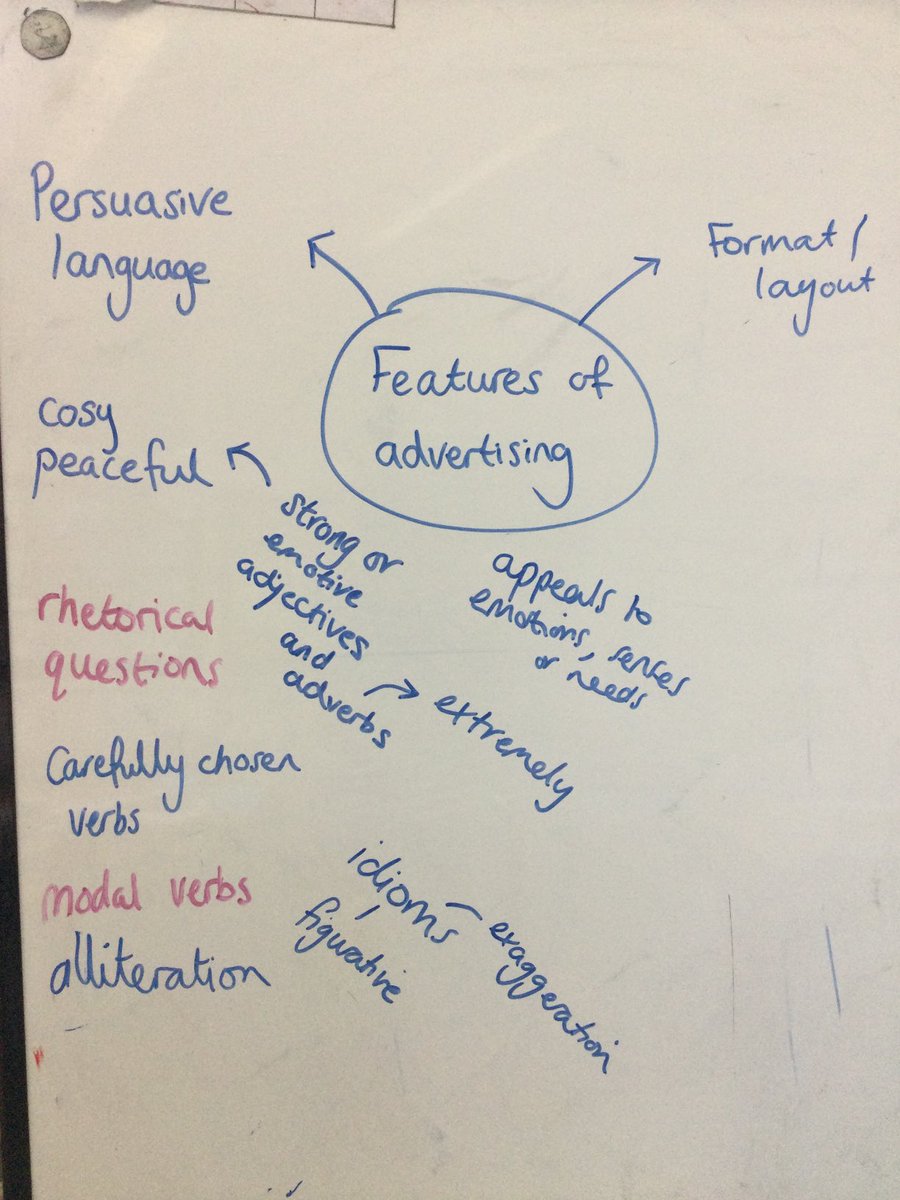 Persuasive
language
Format/
layout
Features of
advertising
cosy
peaceful
strong or
emotive
adjectives
and
adverbs
extremely
appeals to
emotions, senses
or needs
rhetorical
questions
Carefully chosen
verbs
modal verbs
alliteration
idioms
figurative
exaggeration